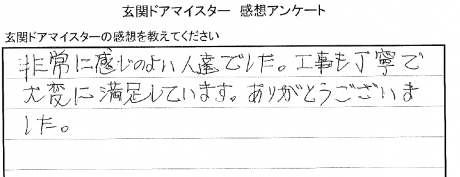 玄関ドアマイスター 感想アンケート
玄関ドアマイスターの感想を教えてください
非常に感じのよい人達でした。工事も丁寧で
大変に満足しています。ありがとうございま
した。